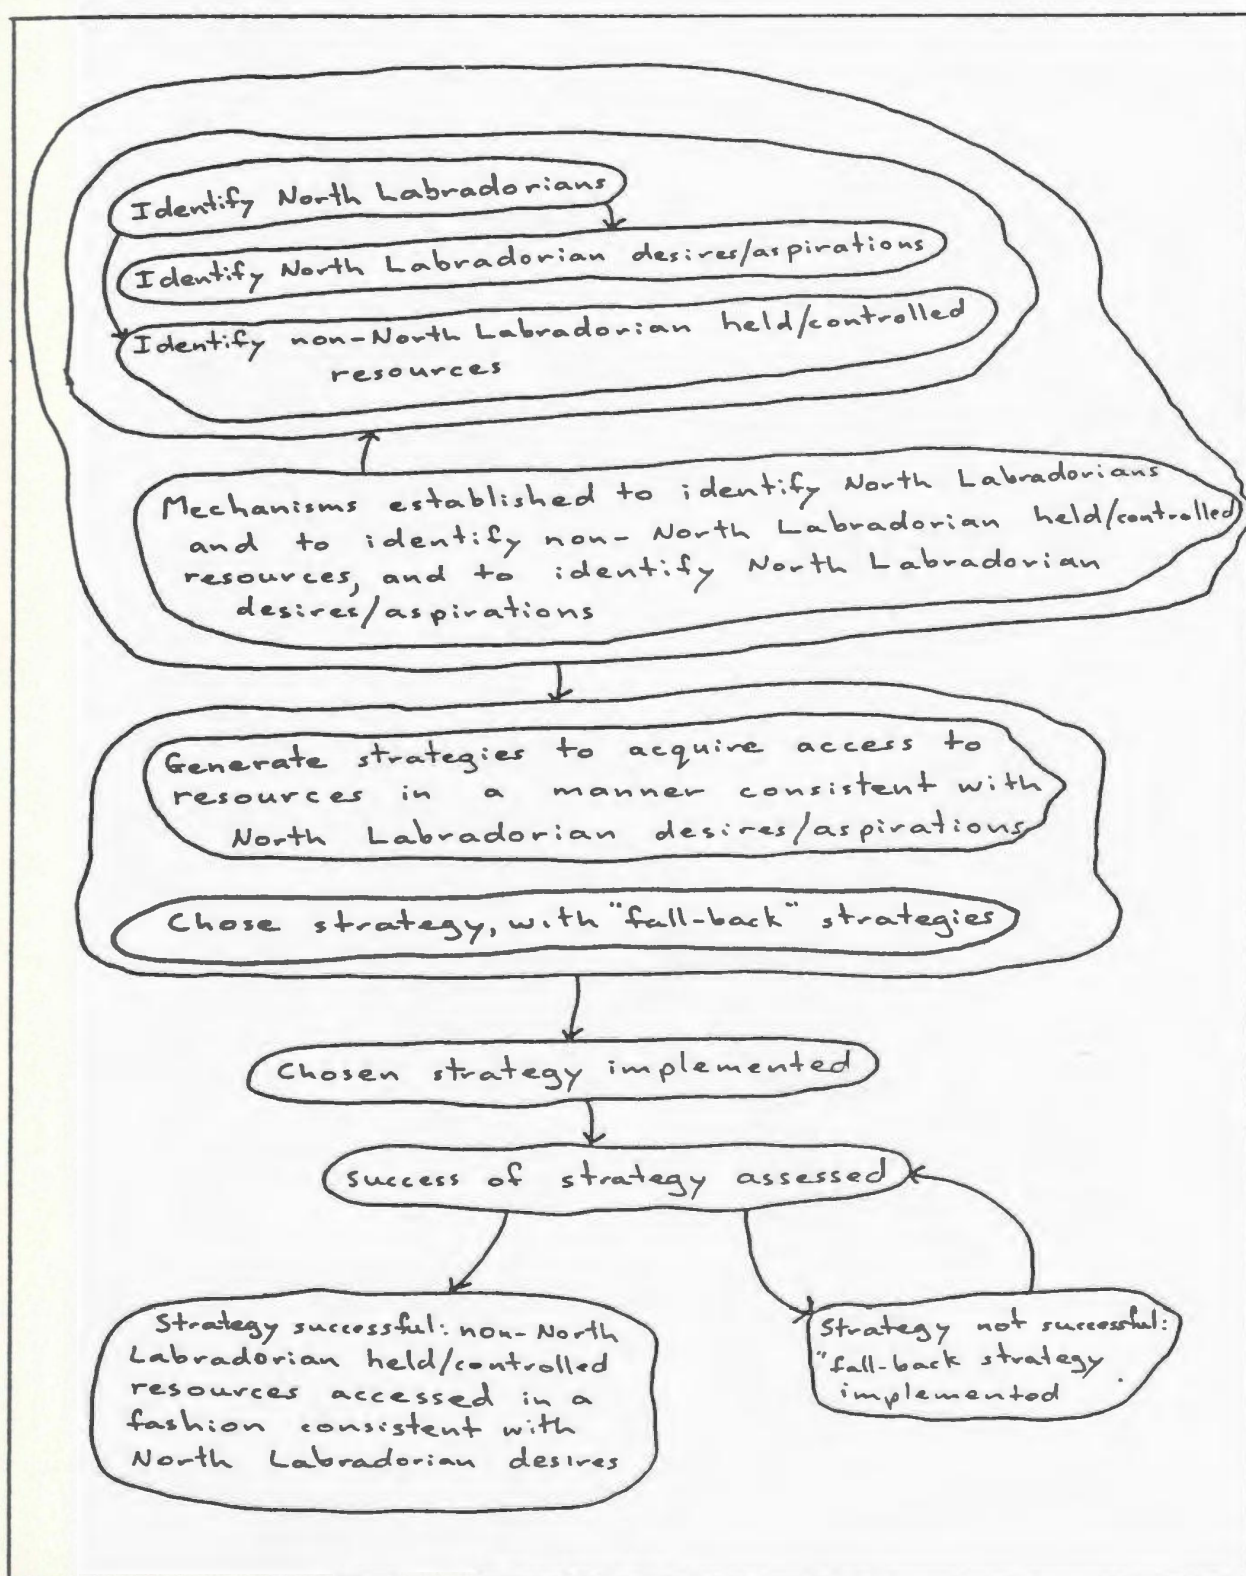 Identify North Labradorians
Identify North Labradorian desires/aspirations
Identify non-North Labradorian held/controlled
resources
Mechanisms established to identify North Labradorians
and to identify non-North Labradorian held/controlled
resources, and to identify North Labradorian
desires/aspirations
Generate strategies to acquire access to
resources in a manner consistent with
North Labradorian desires/aspirations
Chose strategy, with "fall-back" strategies
Chosen strategy implemented
success of strategy assessed
Strategy successful: non-North
Labradorian held/controlled
resources accessed in a
fashion consistent with
North Labradorian desires
Strategy not successful:
"fall-back strategy
implemented